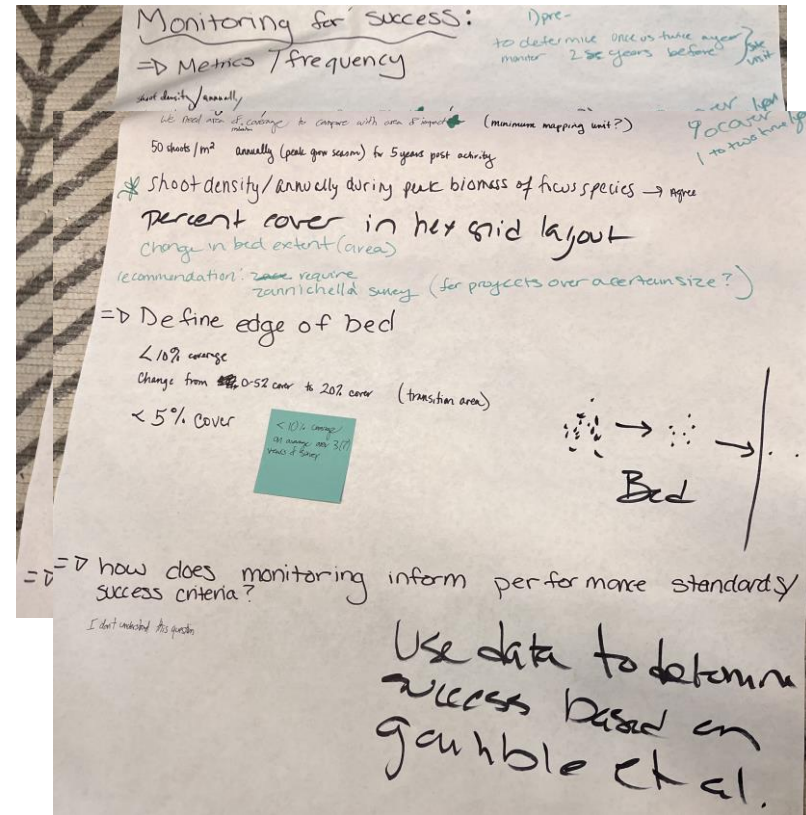 Monitoring for success:
=> Metrics / frequency
shoot density / annually
1) pre-
to determine once vs twice a year
monitor 2 years before
site visit
We need area of coverage to compare with area of impact (minimum mapping unit?)
% cover
50 shoots / m² annually (peak grow season) for 5 years post activity
* Shoot density / annually during peak biomass of focus species → Agree
percent cover in hex grid layout
change in bed extent (area)
recommendation: require
zannichella survey (for projects over a certain size?)
=> Define edge of bed
<10% coverage
Change from cover to 20% cover (transition area)
< 5% cover
<10% coverage
on average over 3(?)
years of survey
Bed
=> how does monitoring inform performance standards/
success criteria?
I don't understand this question
Use data to determine
success based on
et al.